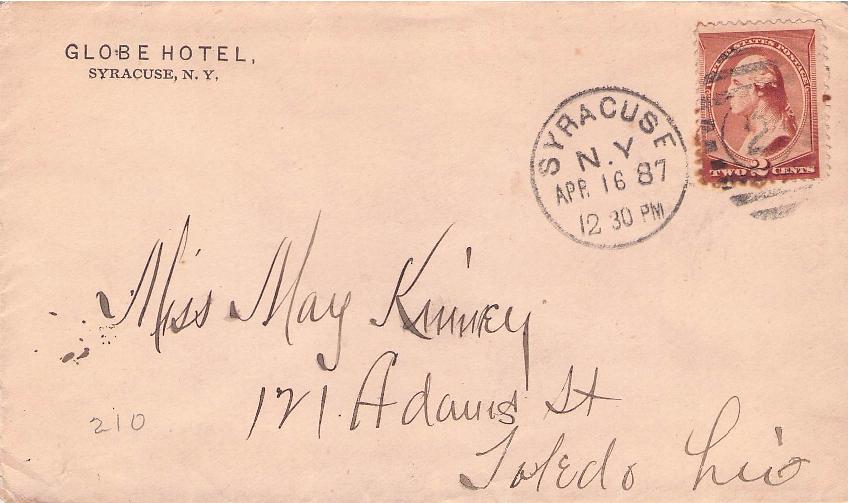 GLOBE HOTEL,
SYRACUSE, N. Y.
UNITED STATES POSTAGE
TWO 2 CENTS
2
SYRACUSE
N.Y
APR 16 87
12 30 PM
Miss May Kinney
121 Adams St
Toledo Ohio
210